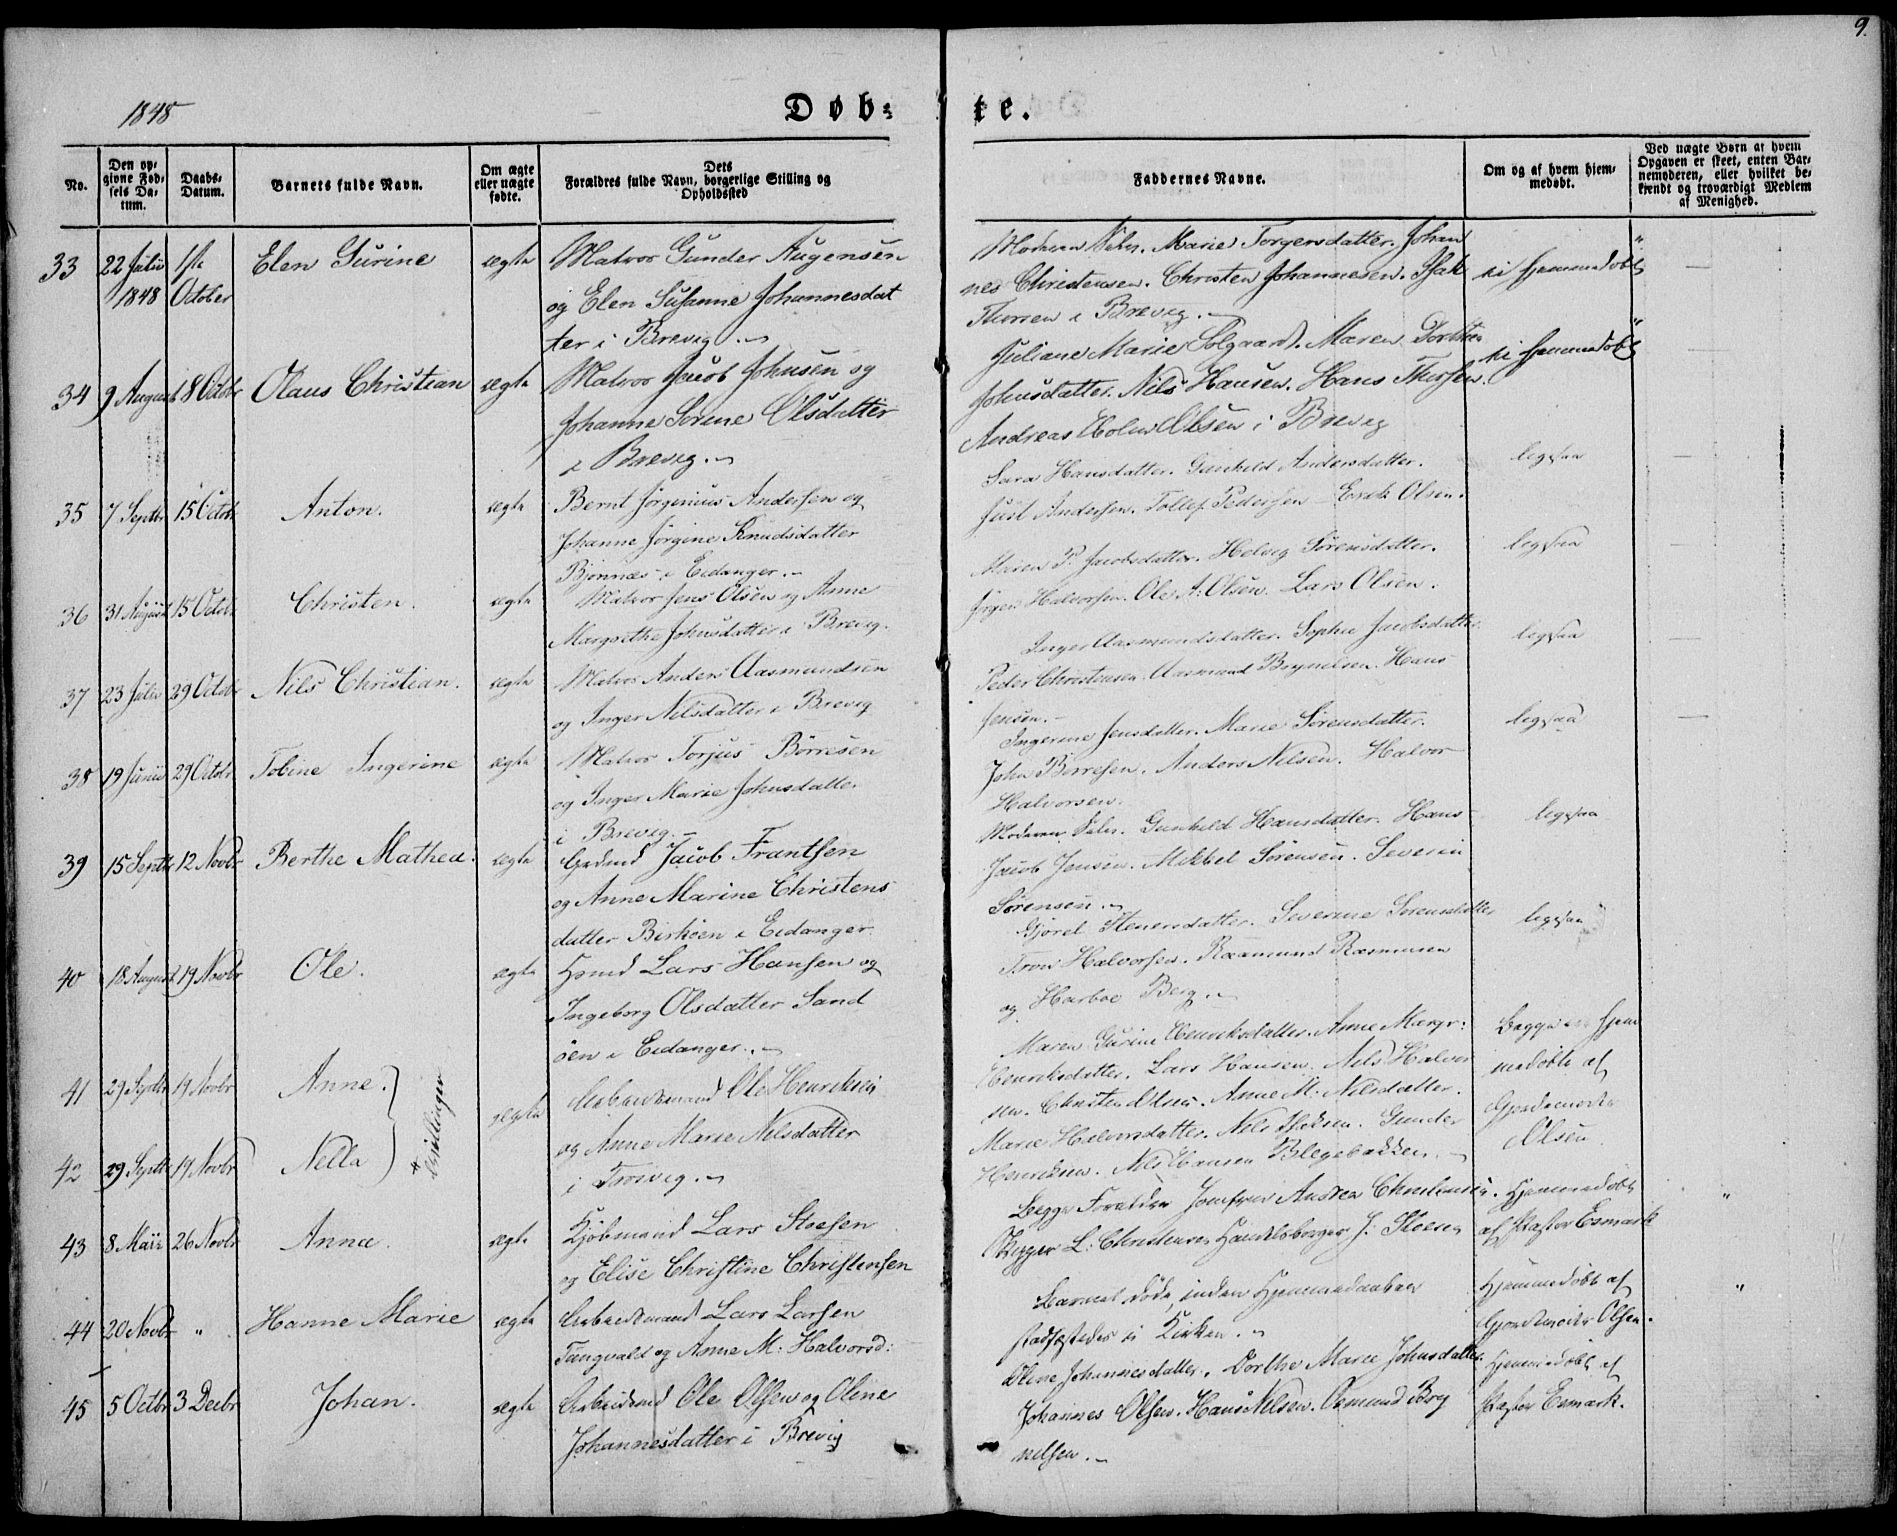 9.
1848
Døb=te.
No.
Den op=
givne Fød=
sels Da=
tum.
Daabs=
Datum.
Barnets fulde Navn.
Om ægte
eller uægte
fødte.
Dets
Forældres fulde Navn, borgerlige Stilling og
Opholdssted
Faddernes Navne.
Om og af hvem hjem=
medøbt.
Ved uægte Børn af hvem
Opgaven er skeet, enten Bar=
nemoderen, eller hvilket be=
kjendt og troværdigt Medlem
af Menighed.
33
22 Julii
1848
1ste
October
Elen Gurine
ægte
Matros Gunder Augensen
og Elen Susanne Johannesdat
ter i Brevig.
Moderen Selv. Marie Torgersdatter. Johan
nes Christensen. Christen Johannesen. Isak
Thorsen i Brevig.
ei hjemmedøbt
"
34
9 August
8 Octobr
Olaus Christian
ægte
Matros Jacob Johnsen og
Johanne Sorine Olsdatter
i Brevig.
Juliane Marie Solgaard. Maren Dorthea
Johnsdatter. Nils Hansen. Hans Thorsen.
Andreas Holm Olsen i Brevig
ei hjemmedøbt
"
35
7 Septbr
15 Octobr
Anton.
ægte
Bernt Jørginius Andersen og
Johanne Jørgine Knudsdatter
Bjønnæs i Eidanger.
Sara Hansdatter. Gunhild Andersdatter.
Just Andersen. Tollef Pedersen Erik Olsen.
ligesaa
36
31 August
15 Octobr
Christen.
ægte
Matros Jens Olsen og Anne
Margrethe Johnsdatter i Brevig.
Maren P. Jacobsdatter. Helvig Sørensdatter.
Jørgen Halvorsen. Ole A: Olsen. Lars Olsen.
ligesaa
37
23 Julii
29 Octobr
Nils Christian.
ægte
Matros Anders Aasmundsen
og Inger Nilsdatter i Brevig
Inger Aasmundsdatter. Sophie Jacobsdatter
Peder Christensen. Aasmund Brynilsen. Hans
Jensen.
ligesaa
38
19 Junii
29 Octobr
Tobine Ingerine
ægte
Matros Torjus Børresen
og Inger Marie Johnsdatter
i Brevig.
Ingerine Jensdatter. Marie Sørensdatter.
John Børresen. Anders Nilsen. Halvor
Halvorsen.
ligesaa
39
15 Septbr
12 Novbr
Berthe Mathea.
ægte
Grdmd Jacob Frantsen
og Anne Marine Christens
datter Birkøen i Eidanger.
Moderen Selv. Gunhild Hansdatter. Hans
Jacob Jensen. Mikkel Sørensen. Severin
Sørensen.
ligesaa
40
18 August
19 Novbr
Ole.
ægte
Hsmd Lars Hansen og
Ingeborg Olsdatter Sand
øen i Eidanger.
Gjørel Stenersdatter. Severine Sørensdatter
Tron Halvorsen. Rasmund Rasmusen
og Harboe Berg.
ligesaa
41
29 Septbr
19 Novbr
Anne.
42
29 Septbr
19 Novbr
Nella
Tvillinger
ægte
Arbeidsmand Ole Henriksen
og Anne Marie Nilsdatter
i Trosvig.
Maren Gurine Henriksdatter. Anne Margr:
Henriksdatter. Lars Hansen. Nils Halvor
sen. Christen Olsen. Anne M. Nilsdatter.
Marie Halvorsdatter. Nils Isaksen. Gunder
Henriksen. Nils Hansen Blegebakken.
Begge ere hjem
medøbte af
Gjordemoder
Olsen.
43
8 Maii
26 Novbr
Anna.
ægte
Kjøbmand Lars Stoesen
og Elise Christine Christensen
Begge Forældre Jomfrue Andrea Christensen.
L. Christensen Handelsborger J. Stoesen
Hjemmedøbt
af Pastor Esmark
"
44
20 Novbr
"
Hanne Marie
ægte
Arbeidsmand Lars Larsen
Tangvald og Anne M: Halvorsd:
Barnet døde, inden Hjemmedaaben
stadfæstedes i Kirken.
Hjemmedøbt af
Gjordemoder Olsen.
"
45
5 Octbr
3 Decbr
Johan.
ægte
Arbeidsmd Ole Olsen og Oline
Johannesdatter i Brevig
Oline Johannesdatter. Dorthe Marie Johnsdatter
Johannes Olsen. Hans Nilsen. Osmund Bryg
nilsen.
Hjemmedøbt af
Pastor Esmark.